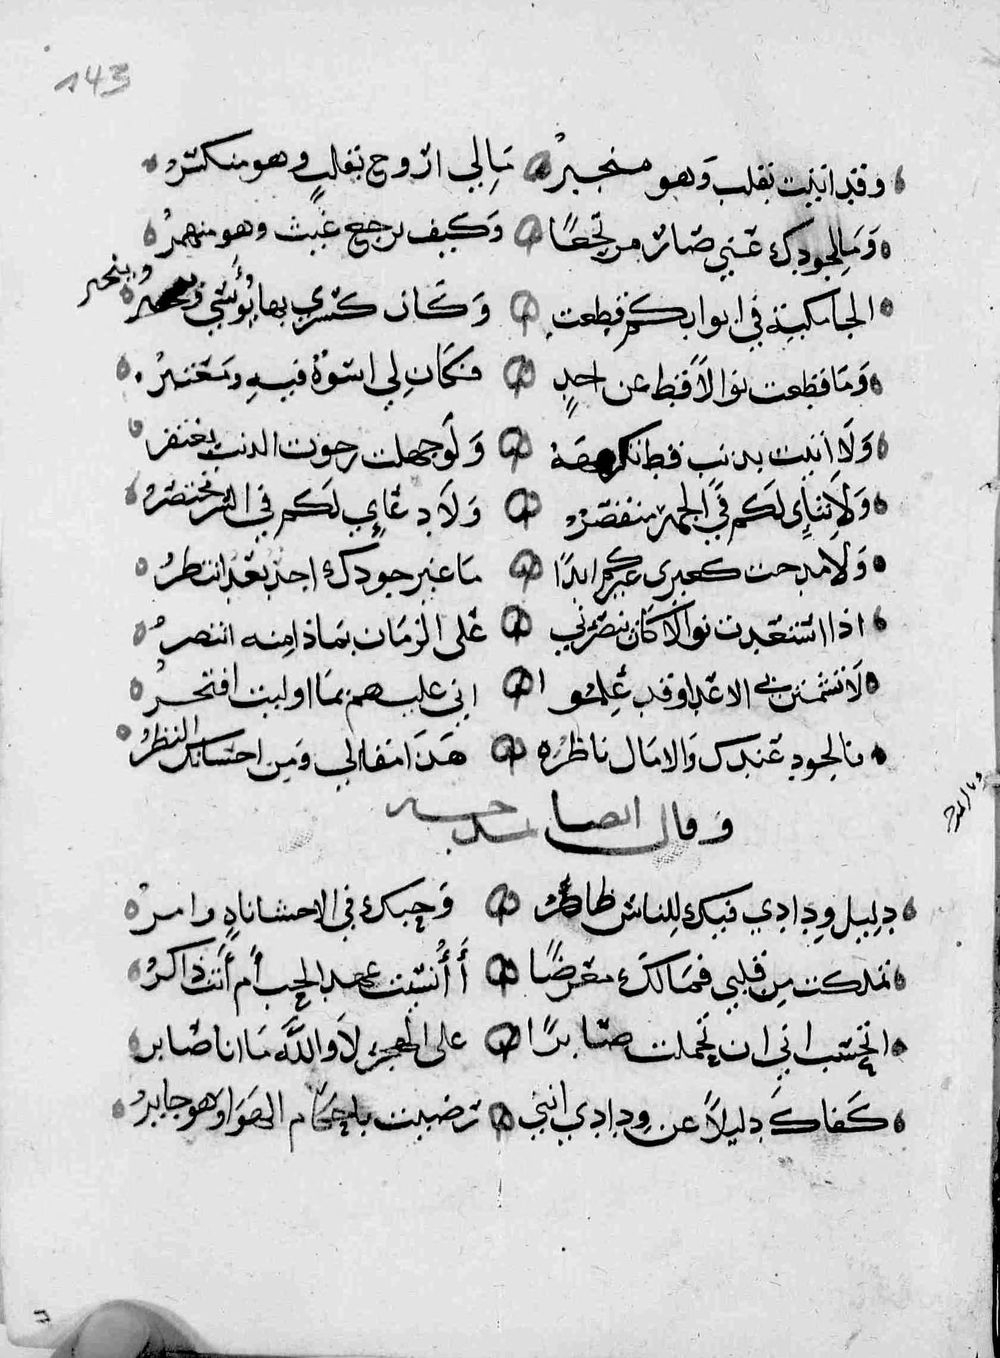 143
وقد اتيت بقلب وهو منجبر مالي اروح بقلب وهو منكسر
وما لجودك عني صار مرتجعا وكيف يرجع غيث وهو منهمر
الجامكية في ابوابكم قطعت وكان كسري بها يؤسى وينجبر
وما قطعت نوالا قط عن احد فكان لي اسوة فيه ومعتبر
ولا اتيت بذنب قط نكرهه ولو جهلت رجوت الذنب يغتفر
ولا ثنائي لكم في الجهر منقصر ولا دعاي لكم في السر مختصر
ولا مدحت كعيري غيركم ابدا ما غير جودك اجد بعد انتظر
اذا استنعدت نوالا كان ينصرني على الزمان بماذا منه انتصر
لا تشمتن بي الاعدا وقد علموا اني عليهم بما اوليت افتخر
فالجود عندك والامال ناظرة هذا مقالي ومن احسانك النظر
وقال ايضا
دليل ودادي فيك للناس ظاهر وحبك في الاحشا ناه وامر
تملكت من قلبي فمالك معرضا أأنسيت عهد الحب أم أنت ذاكر
اتحسب اني ان تحملت صابرا على الهجر لا والله ما انا صابر
كفاك دليلا عن ودادي انني رضيت باحكام الهوا وهو جاير